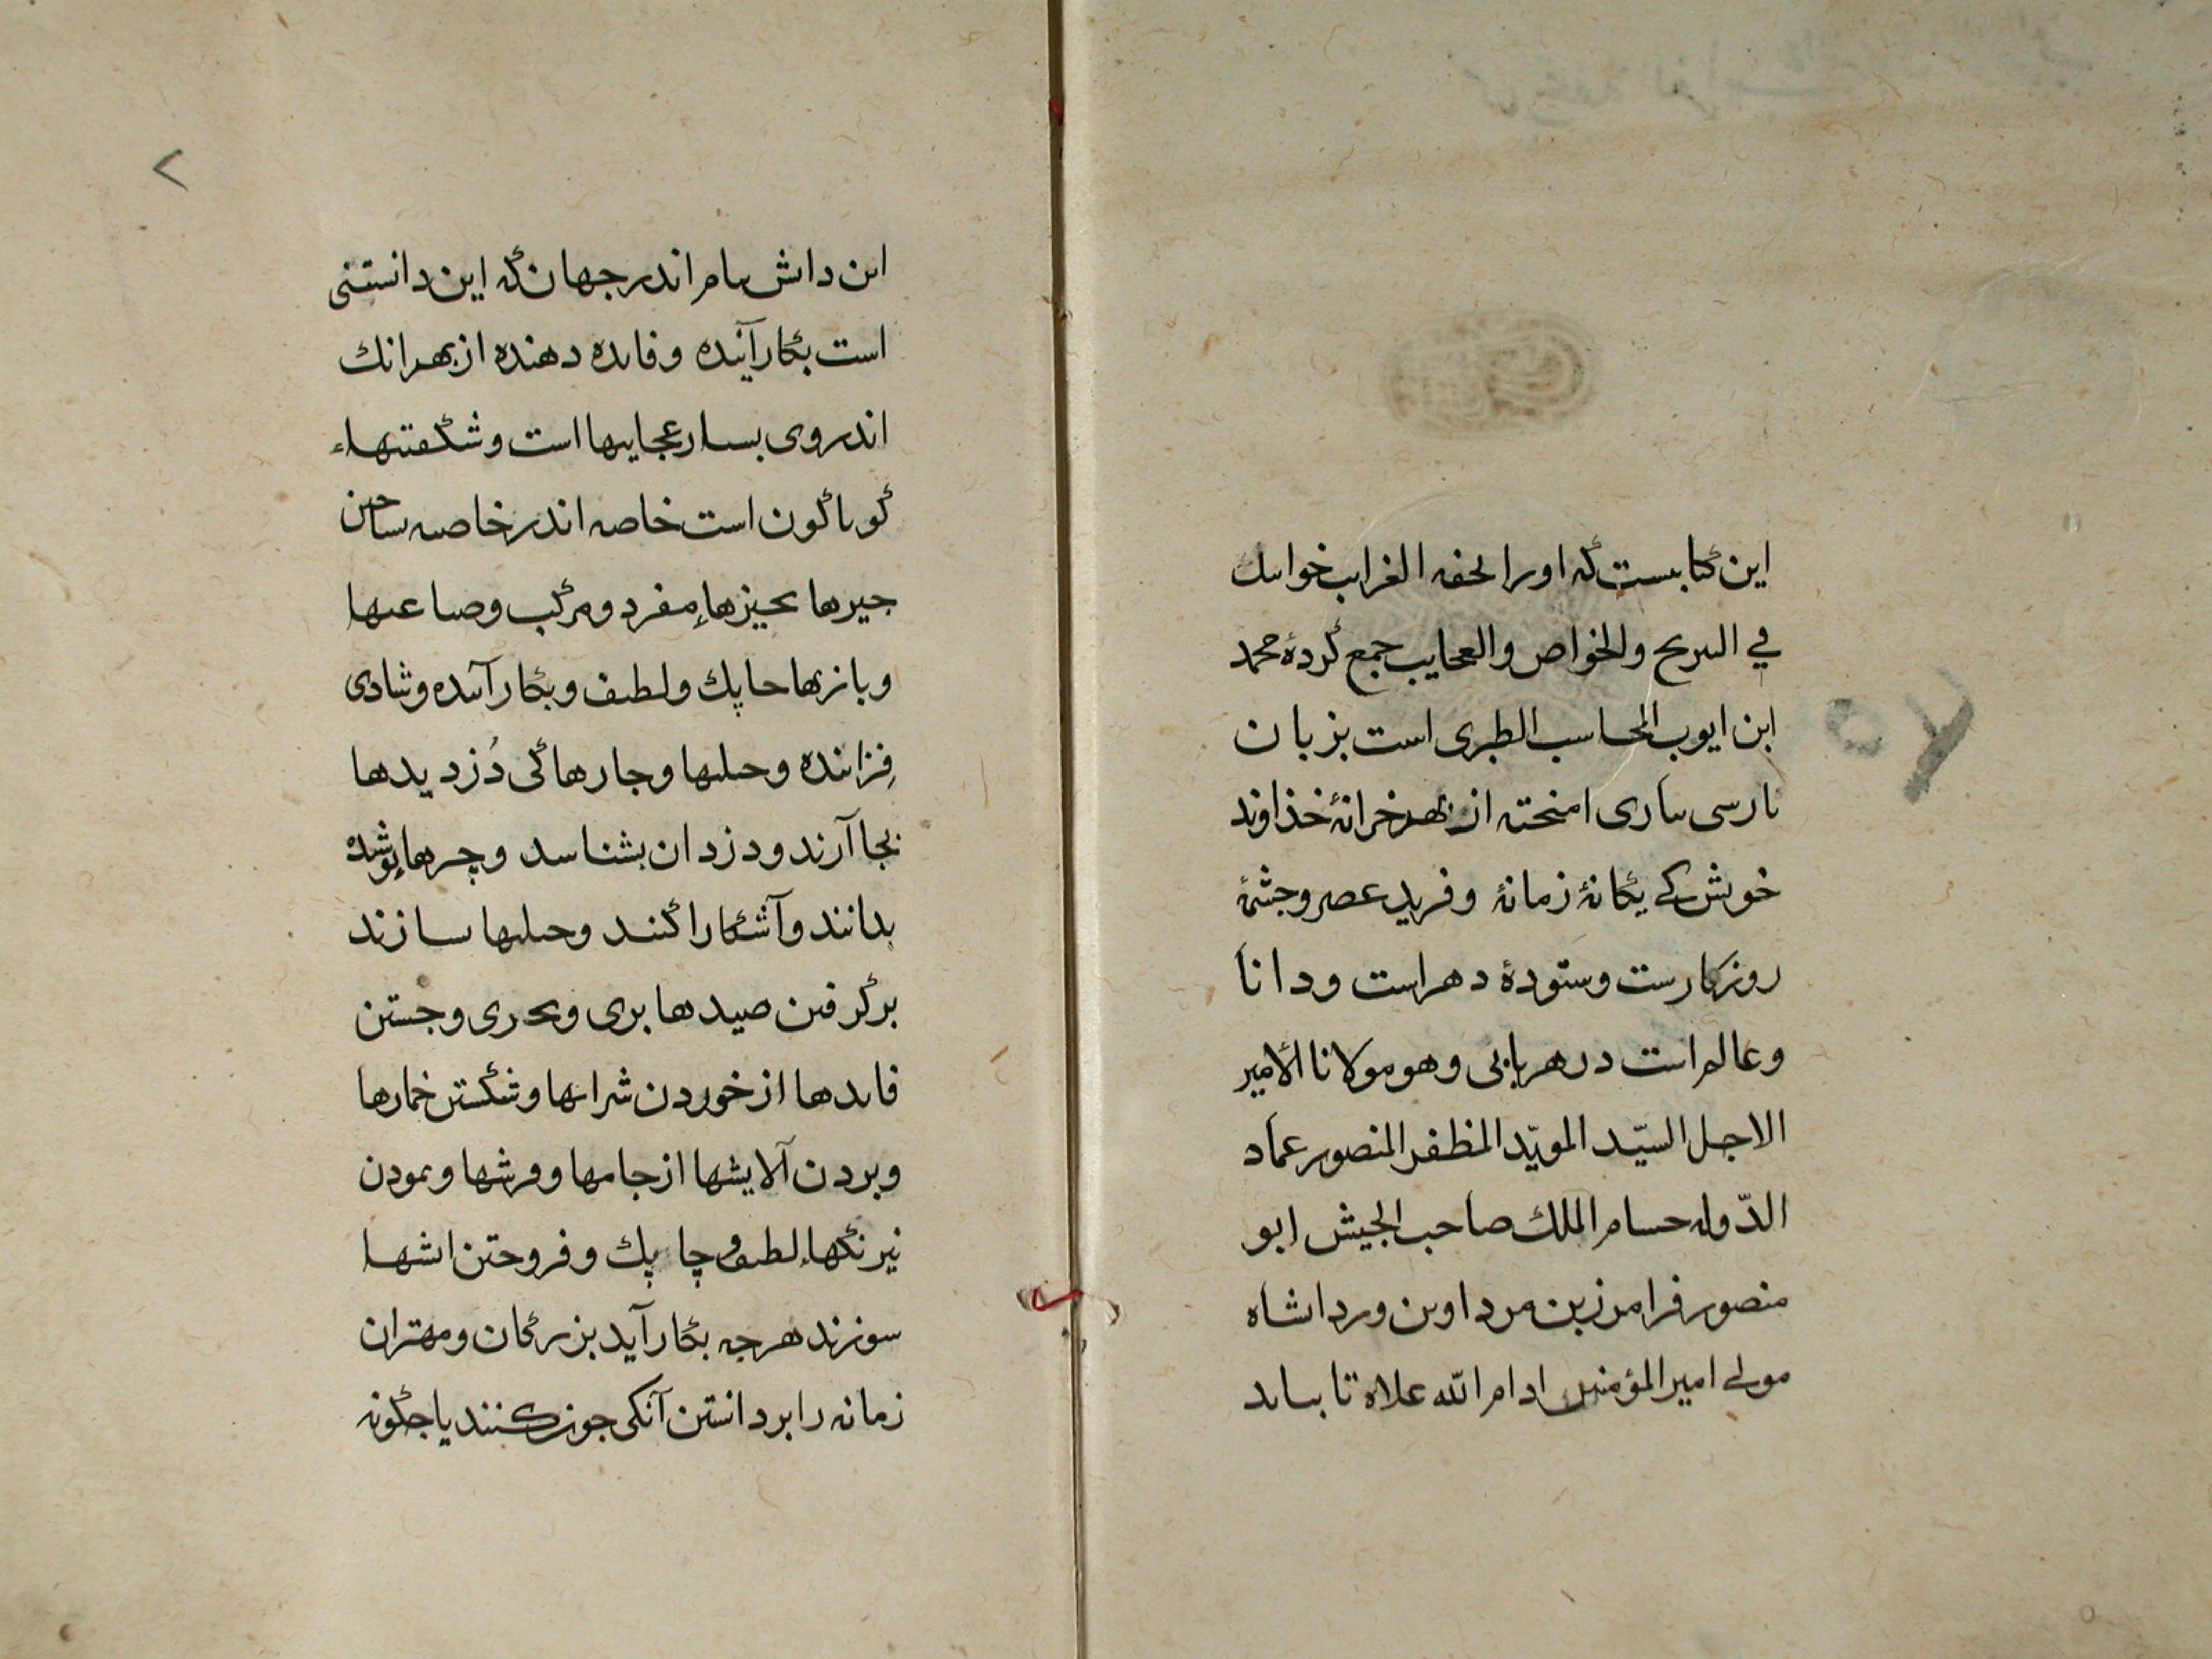 این کتابیست که او را تحفه الغرایب خوانند
في النیرنج والخواص والعجایب جمع کردهٔ محمد
ابن ایوب الحاسب الطبری است بزبان
پارسی بتازی امیخته از بهر خزانهٔ خذاوند
خویش کی یکانهٔ زمانهٔ وفرید عصر وجشمهٔ
روزکارست وستودهٔ دهر است ودانا
وعالم است در هر بابی وهو مولانا الأمیر
الاجل السیّد المویّد المظفر المنصور عماد
الدّوله حسام الملك صاحب الجیش ابو
منصور فرامرز بن مرداوین وردانشاه
مولی امیر المؤمنین ادام الله علاه تا بیابد
این دانش تمام اندر جهان که این دانستنی
است بکار آینده وفایده دهنده از بهر انك
اندر وی بسیار عجایبها است وشکفتیهاء
کوناکون است خاصه اندر خاصیه ساختن
جیزها بجیزهاء مفرد ومرکب وصناعتها
وبازیها چاپك ولطیف وبکار آینده وشادی
فزاینده وحیلتها وجارها کی دُزدیدها
بجا آرند ودزدان بشناسند وچیزهاء پوشیده
بدانند وآشکارا کنند وحیلتها سازند
برکرفتن صیدها بری وبحری وجستن
فایدها از خوردن شرابها وشکستن خمارها
وبردن آلایشها از جامها وفرشها ونمودن
نیرنکهاء لطیف وچاپك وفروختن اتشها
سوزند هرجه بکار آید بزرکان ومهتران
زمانه را بردانستن آنکی جون کنند یا جکونه